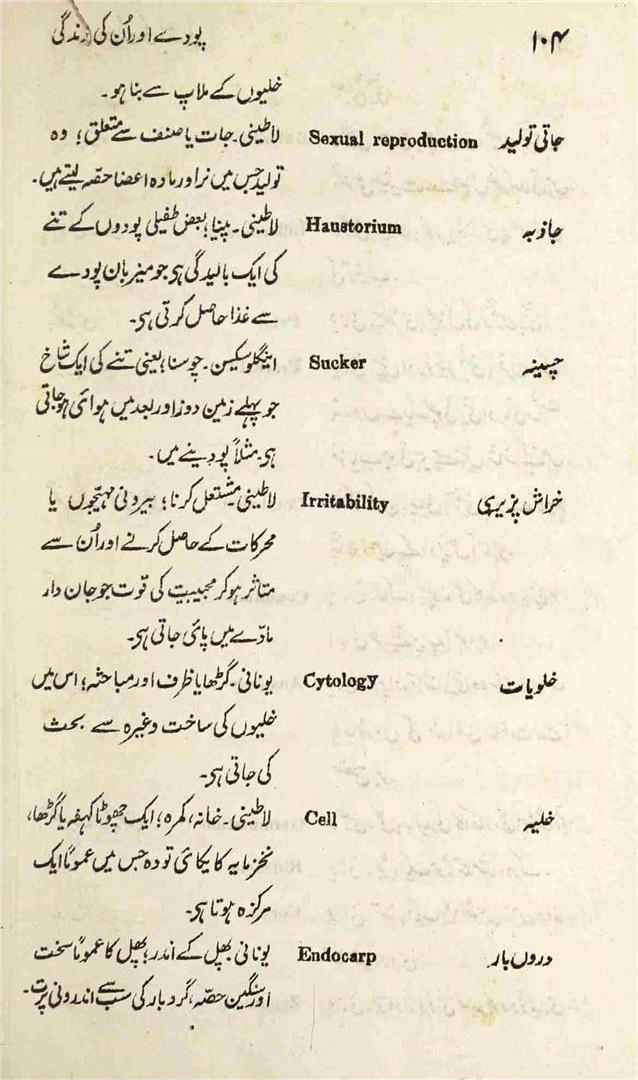 ۱۰۴ پودے اور اُن کی زندگی
خلیوں کے ملاپ سے بنا ہو۔
جاتی تولید Sexual reproduction لاطینی۔ جات یا صنف سے متعلق؛ وہ
تولید جس میں نر اور مادہ اعضا حصّہ لیتے ہیں۔
جاذبہ Haustorium لاطینی۔ پینا؛ بعض طفیلی پودوں کے تنے
کی ایک بالیدگی ہی جو میزبان پودے
سے غذا حاصل کرتی ہی۔
چسینہ Sucker اینگلوسیکسن۔ چوسنا؛ یعنی تنے کی ایک شاخ
جو پہلے زمین دوز اور بعد میں ہوائی ہوجاتی
ہی۔ مثلاً پودینے میں۔
خراش پزیری Irritability لاطینی۔ مشتعل کرنا؛ بیرونی مہیّجوں یا
محرکات کے حاصل کرنے اور اُن سے
متاثر ہوکر مجیبیت کی قوت جو جان دار
مادّے میں پائی جاتی ہی۔
خلویات Cytology یونانی۔ گڑھا یا ظرف اور مباحثہ؛ اس میں
خلیوں کی ساخت وغیرہ سے بحث
کی جاتی ہی۔
خلیہ Cell لاطینی۔ خانہ، کمرہ؛ ایک چھوٹا کہفہ یا گڑھا،
نخزمایہ کا یکائی تودہ جس میں عموماً ایک
مرکزہ ہوتا ہی۔
دروں بار Endocarp یونانی پھل کے اندر؛ پھل کا عموماً سخت
اور سنگین حصّہ، گرد بار کی سب سے اندرونی پرت۔